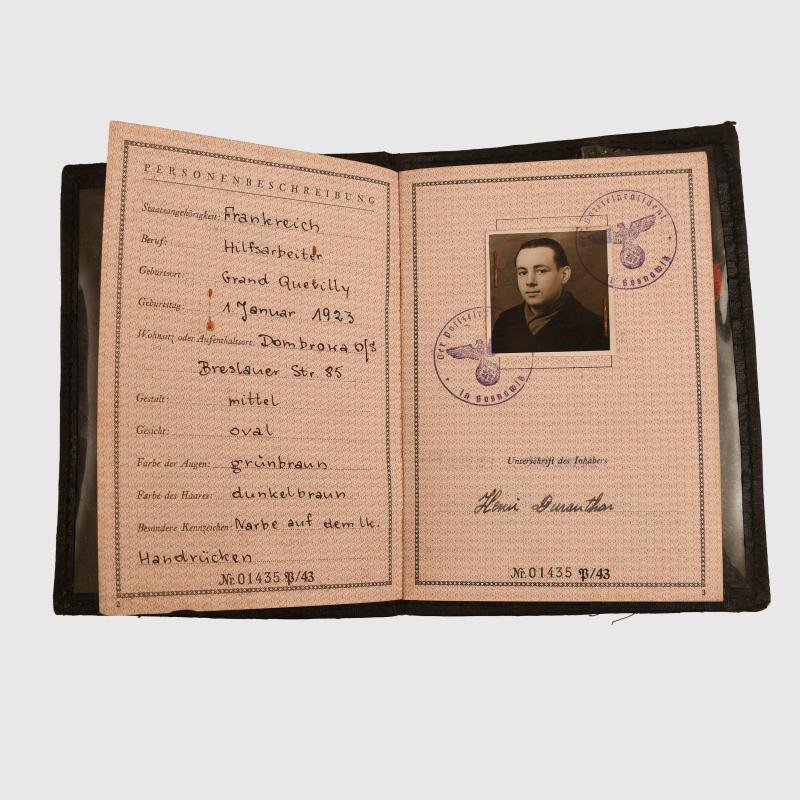 PERSONENBESCHREIBUNG
Staatsangehörigkeit: Frankreich
Beruf: Hilfsarbeiter
Geburtsort: Grand Quevilly
Geburtstag: 1. Januar 1923
Wohnsitz oder Aufenthaltsort: Dombrowa O/S
Breslauer Str. 85
Gestalt: mittel
Gesicht: oval
Farbe der Augen: grünbraun
Farbe des Haares: dunkelbraun
Besondere Kennzeichen: Narbe auf dem lk.
Handrücken
Nr. 01435 P/43
2
Der Polizeipräsident
in Sosnowitz
Der Polizei
in Sosnowitz
Unterschrift des Inhabers
Henri
Nr. 01435 P/43
3